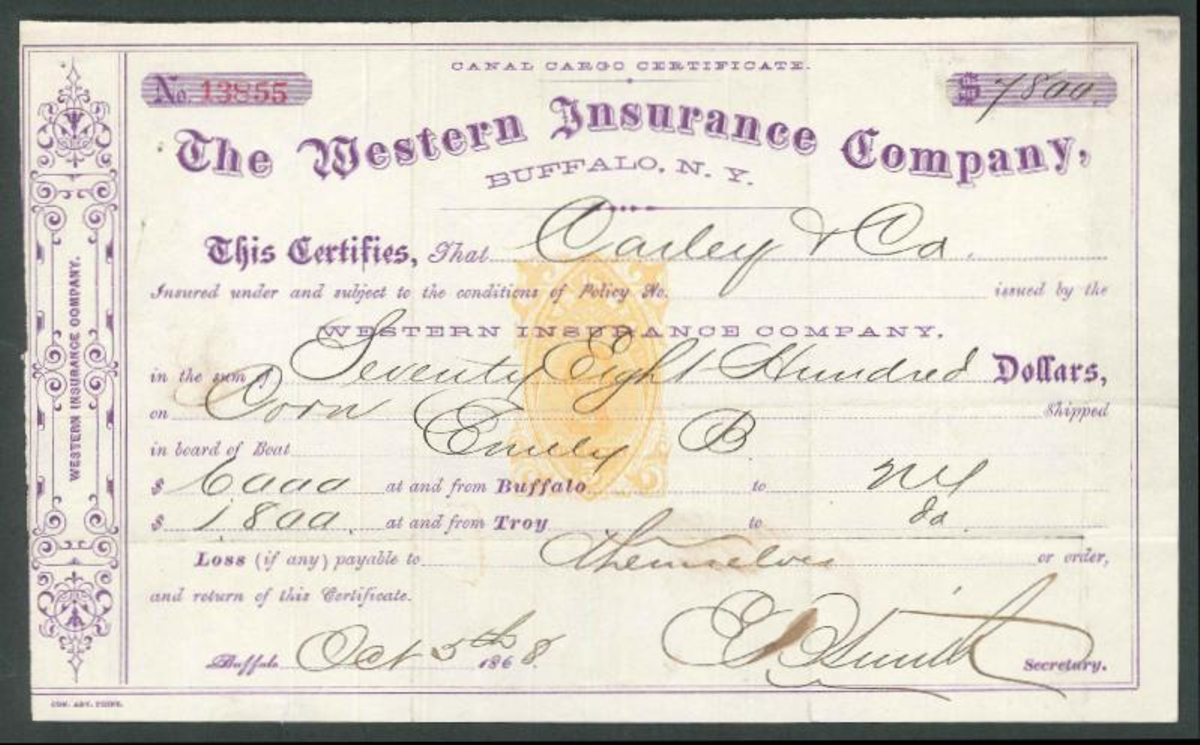 CANAL CARGO CERTIFICATE.
No. 13855
$ 7800.
The Western Insurance Company,
BUFFALO, N. Y.
This Certifies, That Carley & Co.
Insured under and subject to the conditions of Policy No. issued by the
WESTERN INSURANCE COMPANY,
in the sum of Seventy Eight Hundred Dollars,
on Corn Shipped
in board of Boat Emily B
$ 6000 at and from Buffalo to NY
$ 1800. at and from Troy to do.
Loss (if any) payable to themselves or order,
and return of this Certificate.
Buffalo Oct 5th 1868.
E P Smith Secretary.
WESTERN INSURANCE COMPANY.
COM. ADV. PRINT.